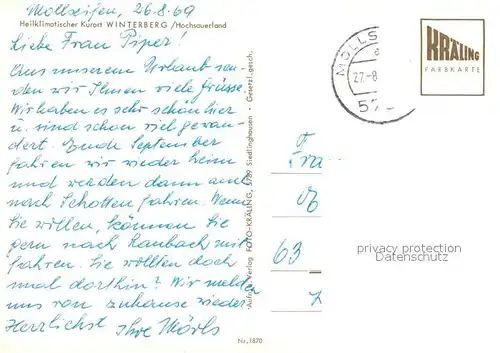 Mollseifen, 26.8.69
Heilklimatischer Kurort WINTERBERG /Hochsauerland
Liebe Frau Piper!
Aus unserem Urlaub sen-
den wir Ihnen viele Grüsse.
Wir haben es sehr schön hier
u. sind schon viel gewan-
dert. Ende September
fahren wir wieder heim
und werden dann auch
nach Schotten fahren. Wenn
Sie wollen, können Sie
gern nach Raubach mit
fahren. Sie wollten doch
mal dorthin? Wir melden
uns von zuhause wieder
Herzlichst Ihre Mörls
Verlag FOTO-KRÄLING, 5789 Siedlinghausen · Gesetzl. gesch.
Nr. 1870
MOLLS
27.-8
57
KRÄLING
FARBKARTE
Fra
63
privacy protection
Datenschutz